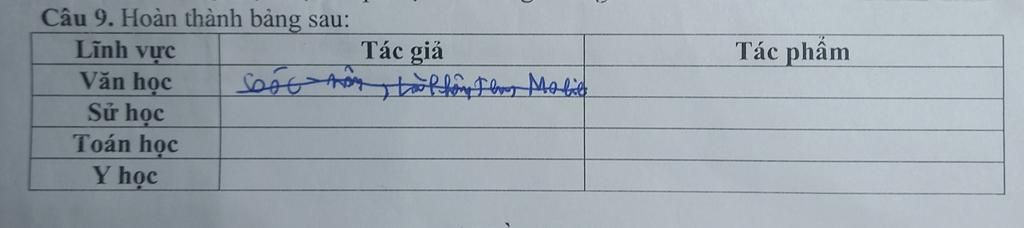 Câu 9. Hoàn thành bảng sau:
Lĩnh vực Tác giả Tác phẩm
Văn học
Sử học
Toán học
Y học